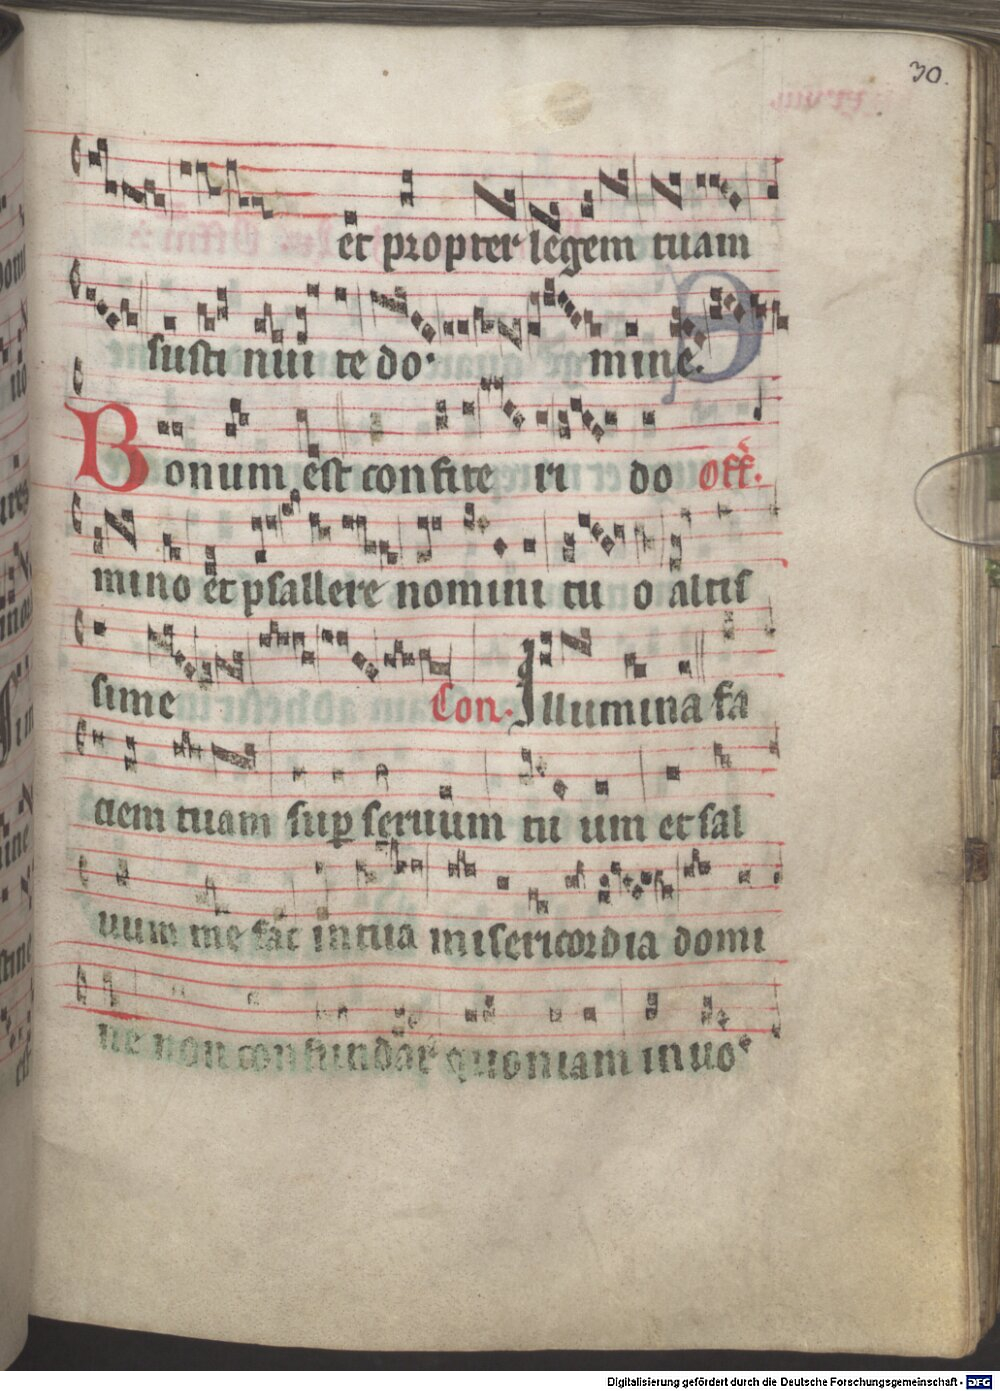 30.
et propter legem tuam
sustinui te do mine.
Bonum est confite ri do Off.
mino et psallere nomini tu o altis
sime Con. Illumina fa
ciem tuam sup seruum tu um et sal
uum me fac in tua misericordia domi
ne non confundar quoniam inuo
Digitalisierung gefördert durch die Deutsche Forschungsgemeinschaft - DFG